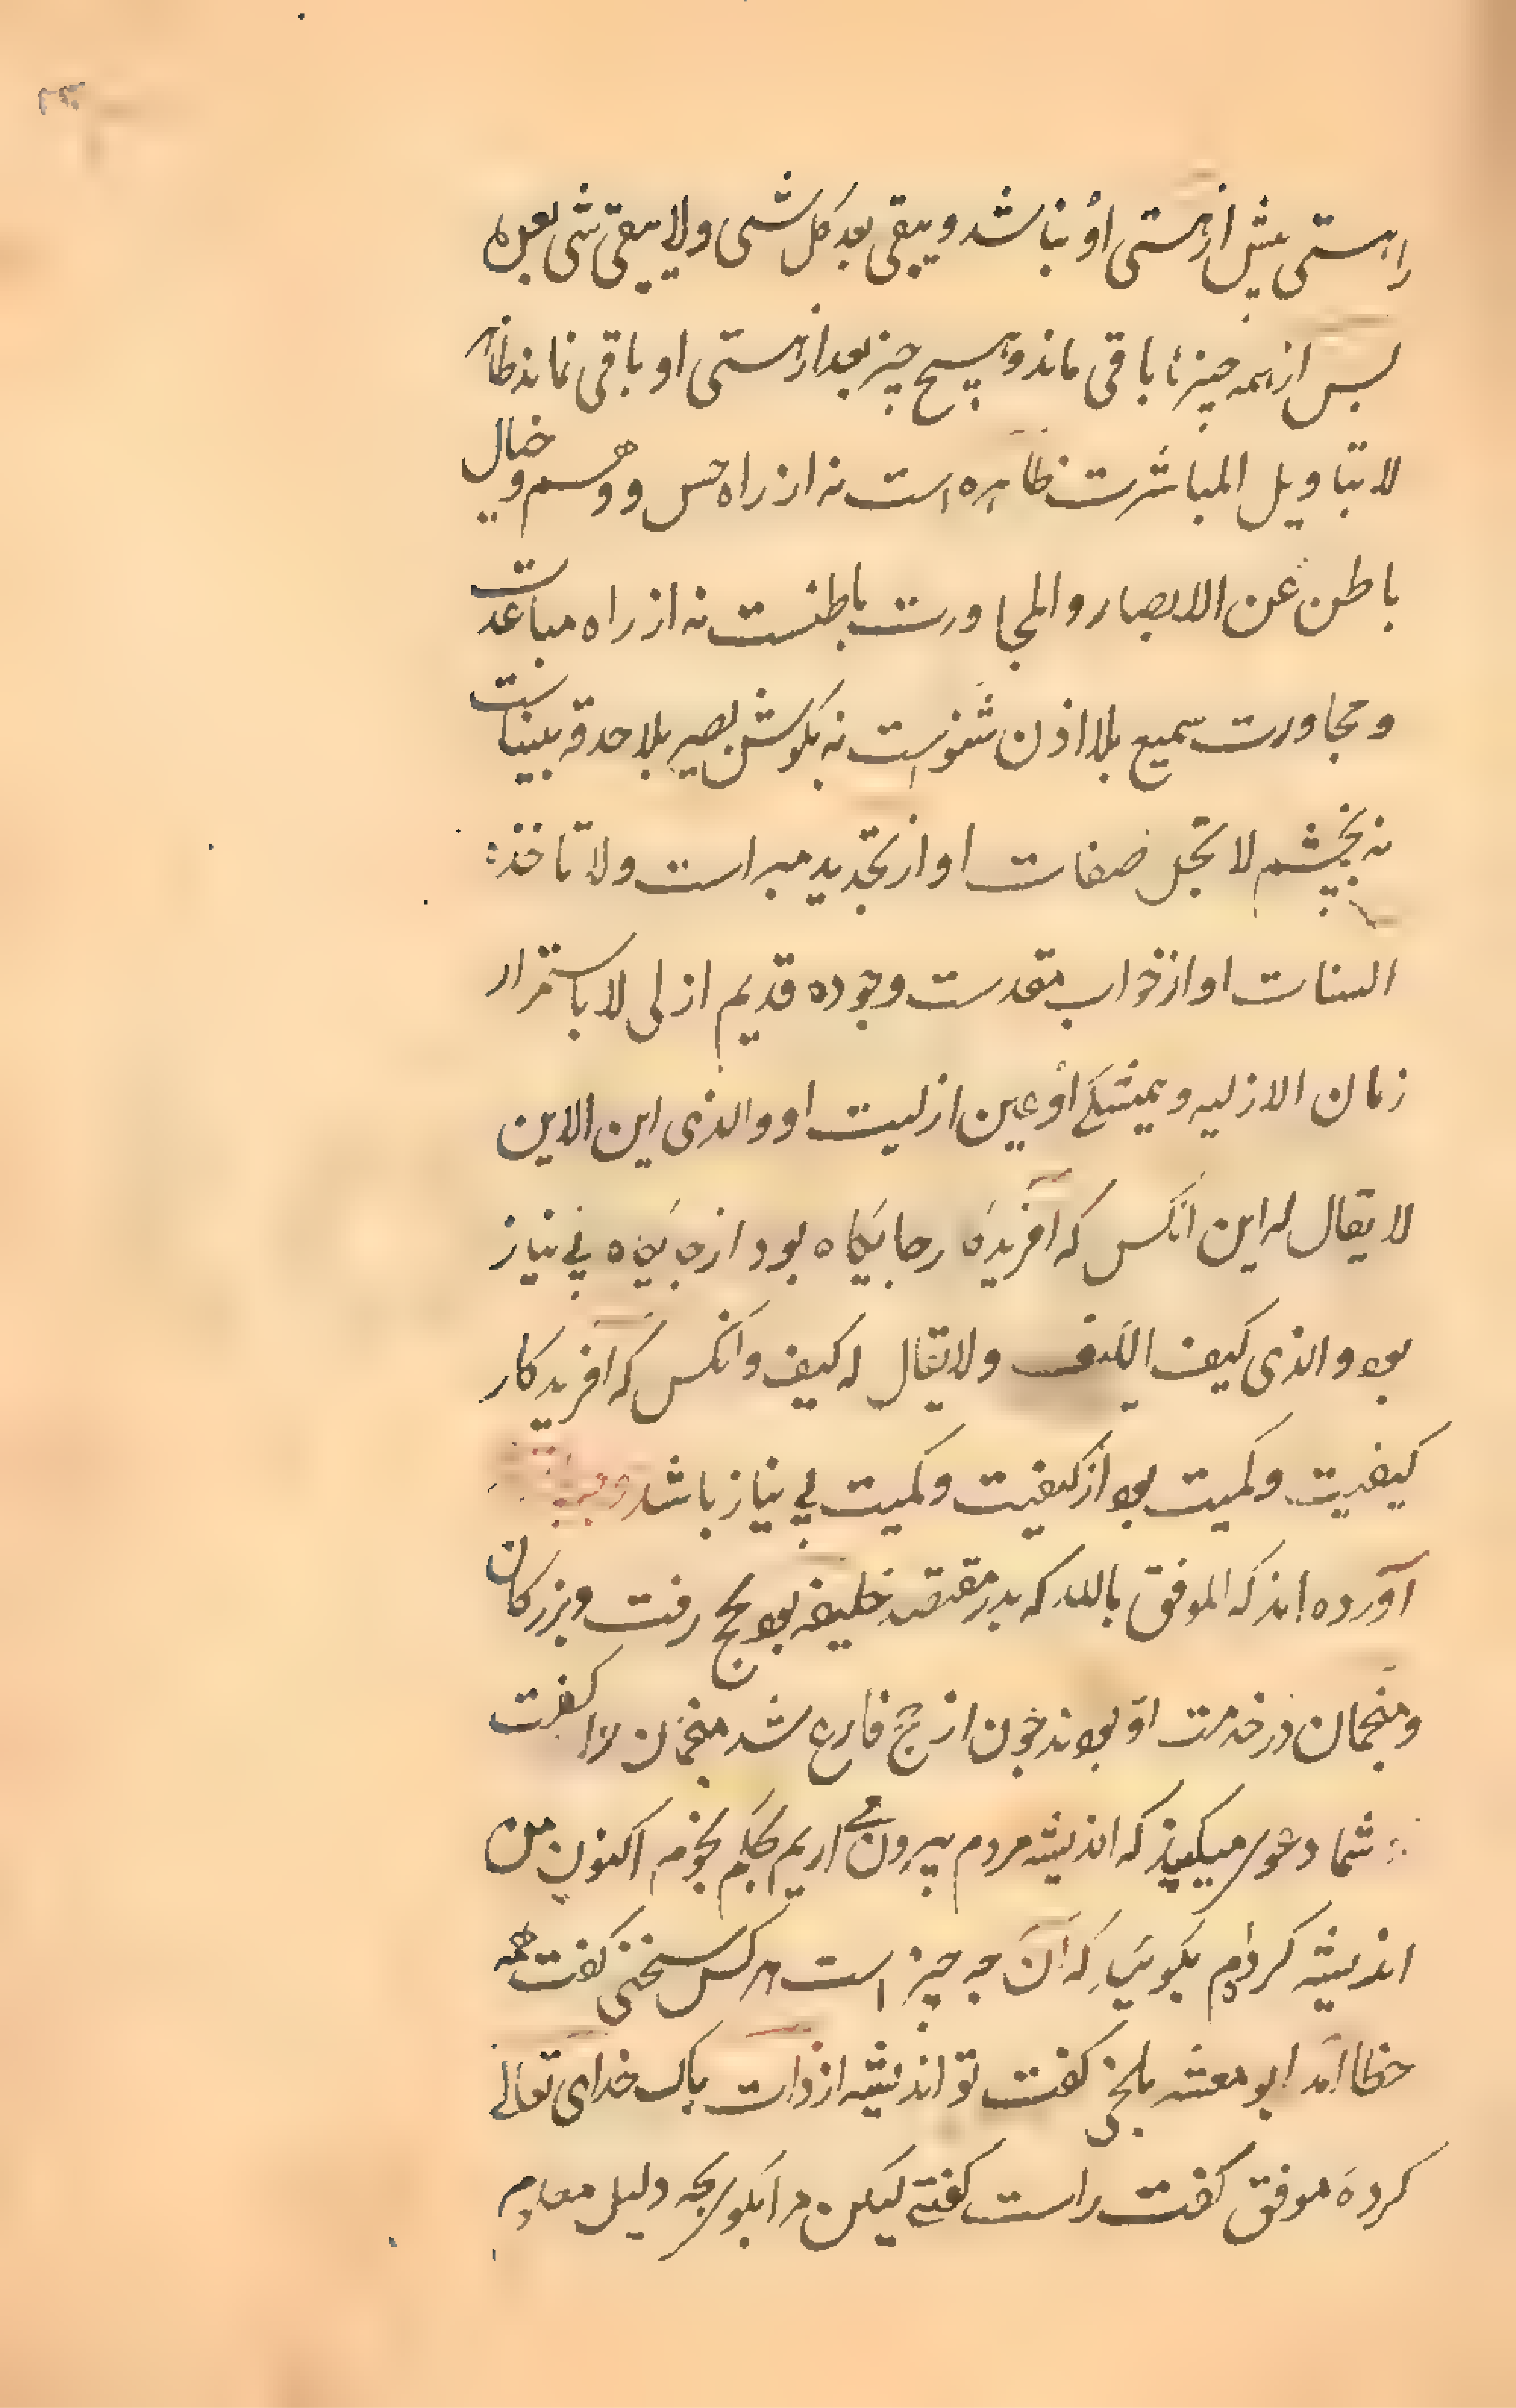 را هستی پیش از هستی او نباشد و یبقی بعد کل شی و لا یبقی شی بعده
پس از همه چیزها باقی ماند و هیچ چیز بعد از هستی او باقی نماند ظاهر
لا بتاویل المباشرت ظاهره است نه از راه حس و وهم و خیال
باطن عن الابصار والمجاورت باطنست نه از راه مباعدت
و مجاورت سمیع بلا اذن شنواست نه بکوش بصیر بلا حدقه بیناست
نه بچشم لا تحل صفات او از تحدید مبراست ولا تاخذه
السنات او از خواب مقدست وجوده قدیم ازلی لا باستمرار
زمان الازلیه و همیشکی او عین ازلیت او والذی این الاین
لا یقال له این انکس که آفریده جایکاه بود از جایکاه بی نیاز
بود والذی کیف الکیف ولا یقال له کیف وانکس که آفریدکار
کیفیت وکمیت بود از کیفیت وکمیت بی نیاز باشد
آورده اند که الموفق بالله که پدر معتضد خلیفه بود بحج رفت و بزرکان
ومنجمان در خدمت او بودند چون از حج فارغ شد منجمان را کفت
شما دعوی میکنید که اندیشه مردم بیرون می اریم بحکم نجوم اکنون من
اندیشه کردم بکویید که آن چه چیز است هر کس سخنی کفت همه
خطا آمد ابو معشر بلخی کفت تو اندیشه از ذات پاک خدای تعالی
کرده موفق کفت راست کفتی لیکن مرا بکوی بچه دلیل معلوم